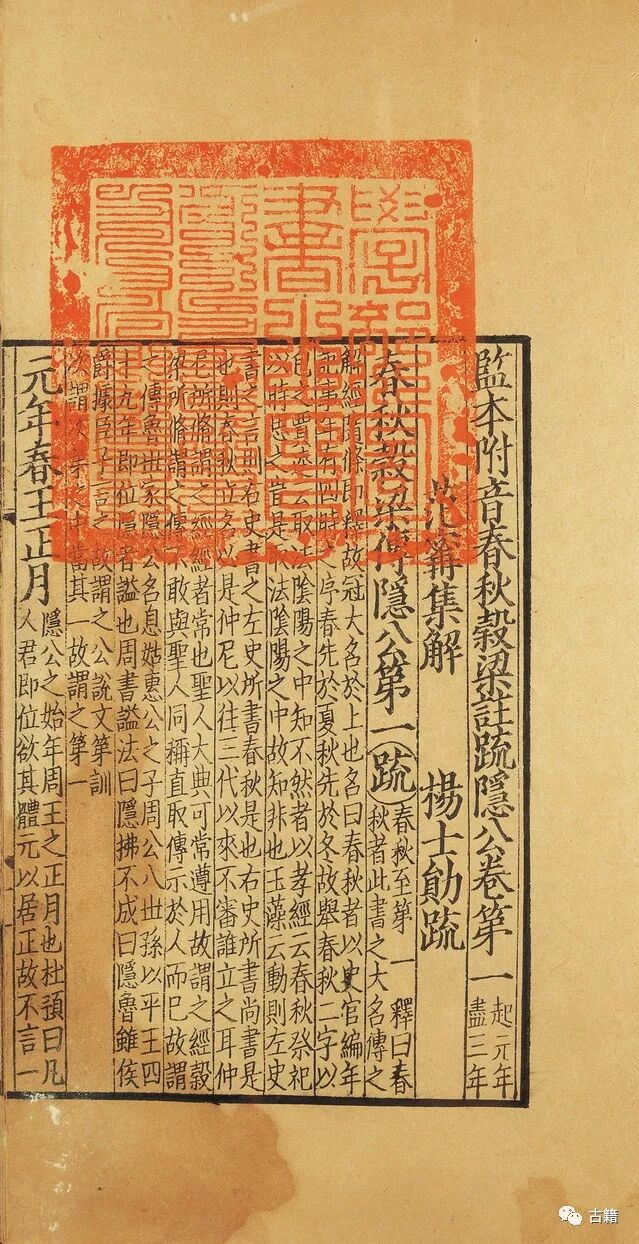 監本附音春秋穀梁註疏隱公卷第一
起元年
盡三年
范甯集解　楊士勛疏
春秋穀梁傳隱公第一(疏)
春秋至第一　釋曰春
秋者此書之大名傳之
解經隨條即釋故冠大名於上也名曰春秋者以史官編年
記事年有四時之序春先於夏秋先於冬故舉春秋二字以
包之賈逵云取法陰陽之中知不然者以孝經云春秋祭祀
以時思之豈是取法陰陽之中故知非也玉藻云動則左史
書之言則右史書之左史所書春秋是也右史所書尚書是
也則春秋立名必是仲尼以往三代以來不審誰立之耳仲
尼所脩謂之經經者常也聖人大典可常遵用故謂之經穀
梁所脩謂之傳不敢與聖人同稱直取傳示於人而已故謂
之傳魯世家隱公名息姑惠公之子周公八世孫以平王四
十九年即位隱者謚也周書謚法曰隱拂不成曰隱魯雖侯
爵據臣子言之故謂之公說文第訓
次謂次第之中當其一故謂之第一
元年春王正月
隱公之始年周王之正月也杜預曰凡
人君即位欲其體元以居正故不言一
學部圖書之印
古籍